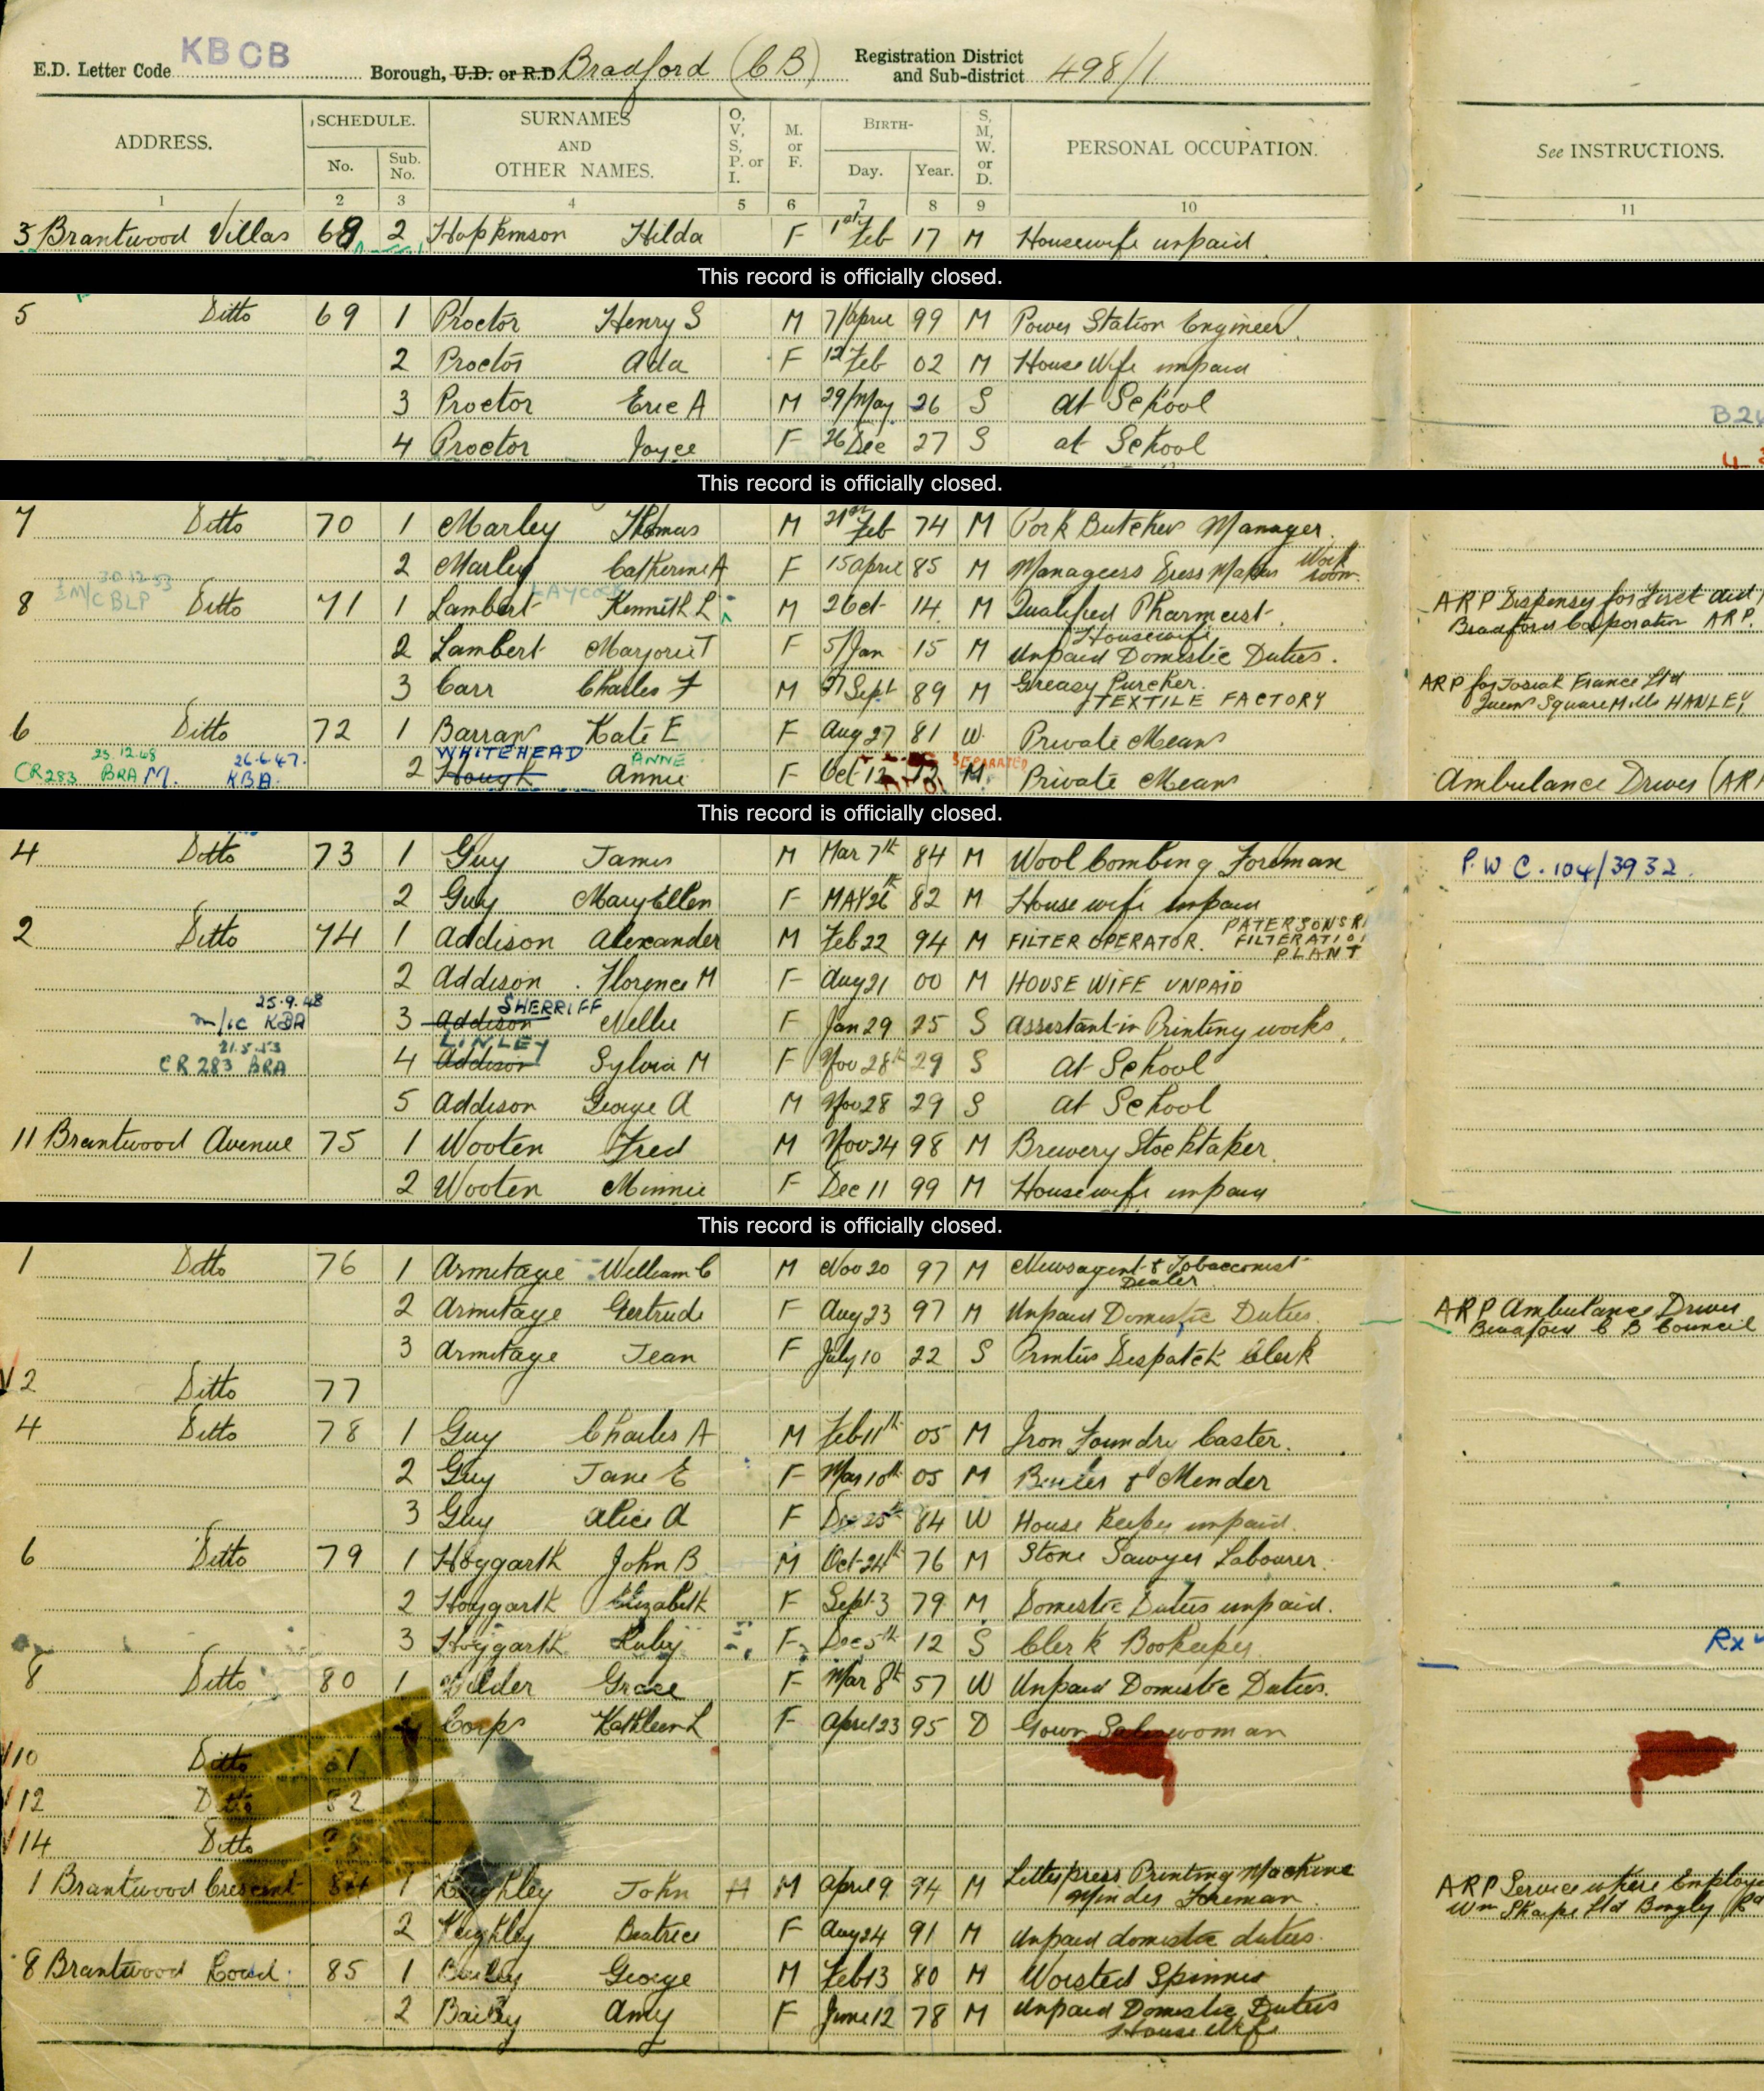 E.D. Letter Code KBCB Borough, U.D. or R.D Bradford (CB) Registration District and Sub-district 498/1
ADDRESS. SCHEDULE. No. Sub. No. SURNAMES AND OTHER NAMES. O, V, S, P. or I. M. or F. BIRTH- Day. Year. S, M, W. or D. PERSONAL OCCUPATION. See INSTRUCTIONS.
1 2 3 4 5 6 7 8 9 10 11
3 Brantwood Villas 68 2 Hopkinson Hilda F 1st Feb 17 M Housewife unpaid
This record is officially closed.
5 Ditto 69 1 Proctor Henry S M 7/April 99 M Power Station Engineer
2 Proctor Ada F 12 Feb 02 M House Wife unpaid
3 Proctor Eric A M 29/May 26 S at School
4 Proctor Joyce F 26 Dec 27 S at School
This record is officially closed.
7 Ditto 70 1 Marley Thomas M 21st Feb 74 M Pork Butcher Manager
2 Marley Catherine A F 15 April 85 M Manageress Dress Maker Work room
30.12.53
M/C BLP LAYCOCK
8 Ditto 71 1 Lambert Kenneth L M 2 Oct 14 M Qualified Pharmcist. ARP Dispensy for First aid
Bradford Corporation ARP.
2 Lambert Marjorie T F 5/Jan 15 M Unpaid Domestic Duties. Housewife
3 Carr Charles F M 27 Sept 89 M Greasy Percher. TEXTILE FACTORY ARP for Josiah France Ltd
Queen Square Mills HANLEY
6 Ditto 72 1 Barran Kate E F Aug 27 81 W Private Means
23.12.48 26.6.47. WHITEHEAD ANNE SEPARATED
CR283 BRA M. KBA. 2 Hough Annie F Oct 12 12 M. Private Means Ambulance Driver (ARP
This record is officially closed.
4 Ditto 73 1 Guy James M Mar 7th 84 M Wool Combing Foreman P.W C. 104/3932
2 Guy Mary Ellen F MAY 26th 82 M House wife unpaid
2 Ditto 74 1 Addison Alexander M Feb 22 94 M FILTER OPERATOR. PATERSONS
FILTERATIO
PLANT
2 Addison Florence M F Aug 21 00 M HOUSE WIFE UNPAID
25.9.48 SHERRIFF
m/c KBA 3 Addison Nellie F Jan 29 25 S Assistant in Printing works
21.5.53 LINLEY
CR 283 BRA 4 Addison Sylvia M F Nov 28th 29 S at School
5 Addison George A M Nov 28 29 S at School
11 Brantwood Avenue 75 1 Wooten Fred M Nov 24 98 M Brewery Stocktaker
2 Wooten Minnie F Dec 11 99 M Housewife unpaid
This record is officially closed.
1 Ditto 76 1 Armitage William C M Nov 20 97 M Newsagent & Tobacconist
Dealer
2 Armitage Gertrude F Aug 23 97 M Unpaid Domestic Duties ARP Ambulance Driver
Bradford C B Council
3 Armitage Jean F July 10 22 S Printers Despatch Clerk
2 Ditto 77
4 Ditto 78 1 Guy Charles A M Feb 11th 05 M Iron Foundry Caster.
2 Guy Jane E F Mar 10th 05 M & Mender
3 Guy Alice A F Dec 25th 84 W House Keeper unpaid.
6 Ditto 79 1 Hoggarth John B M Oct 24th 76 M Stone Sawyer Labourer.
2 Hoggarth Elizabeth F Sept 3 79 M Domestic Duties unpaid.
3 Hoggarth Ruby F Dec 5th 12 S Clerk Bookeeper Rx
8 Ditto 80 1 Gelder Grace F Mar 8th 57 W Unpaid Domestic Duties.
Corps Kathleen L F April 23 95 D Gown Saleswoman
10 Ditto 81
12 Ditto 82
14 Ditto
1 Brantwood Crescent 84 1 Keighley John M April 9 94 M Letterpress Printing Machine ARP Service where Employe
Minder Foreman Wm Sharpe Ltd Bingley
2 Keighley Beatrice F Aug 24 91 M Unpaid domestic duties.
8 Brantwood Road. 85 1 Bailey George M Feb 13 80 M Worsted Spinner
2 Bailey Amy F June 12 78 M Unpaid Domestic Duties
House Wife